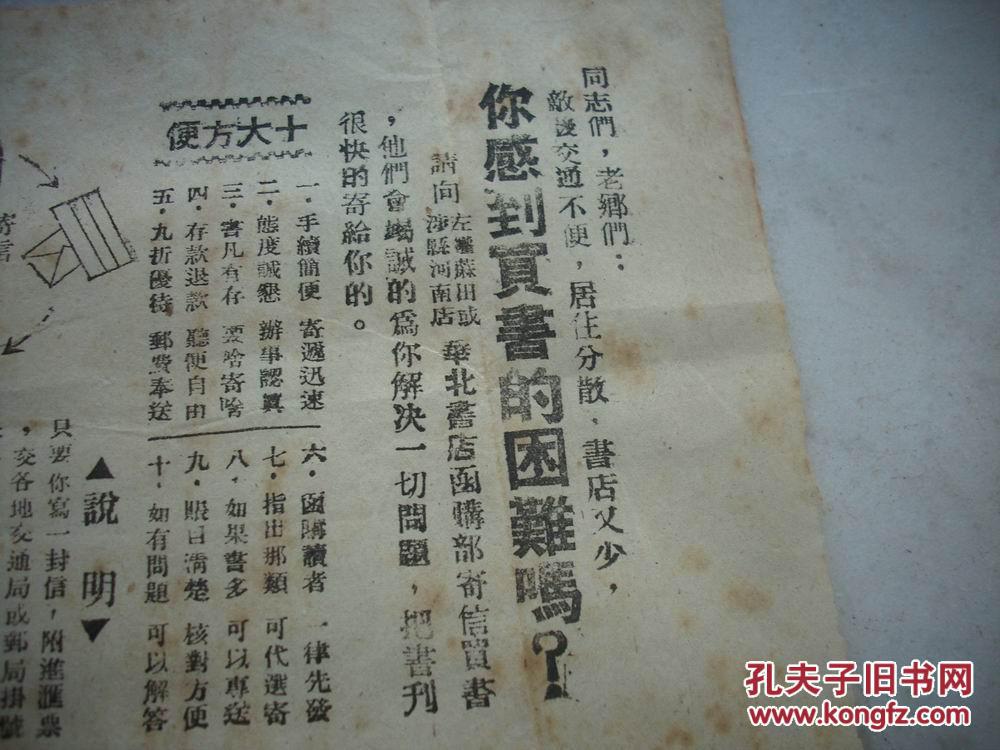 同志們，老鄉們：
敵後交通不便，居住分散，書店又少，
你感到買書的困難嗎？
請向左權麻田或涉縣河南店華北書店函購部寄信買書
，他們會竭誠的爲你解决一切問題，把書刊
很快的寄給你的。
十大方便
一．手續簡便 寄遞迅速
二．態度誠懇 辦事認真
三．書凡有存 要啥寄啥
四．存款退款 聽便自由
五．九折優待 郵費奉送
六．函購讀者 一律先發
七．指出那類 可代選寄
八．如果書多 可以專送
九．賬目清楚 核對方便
十．如有問題 可以解答
寄信
▲說明▼
只要你寫一封信，附進匯票
，交各地交通局或郵局掛號
孔夫子旧书网
www.kongfz.com